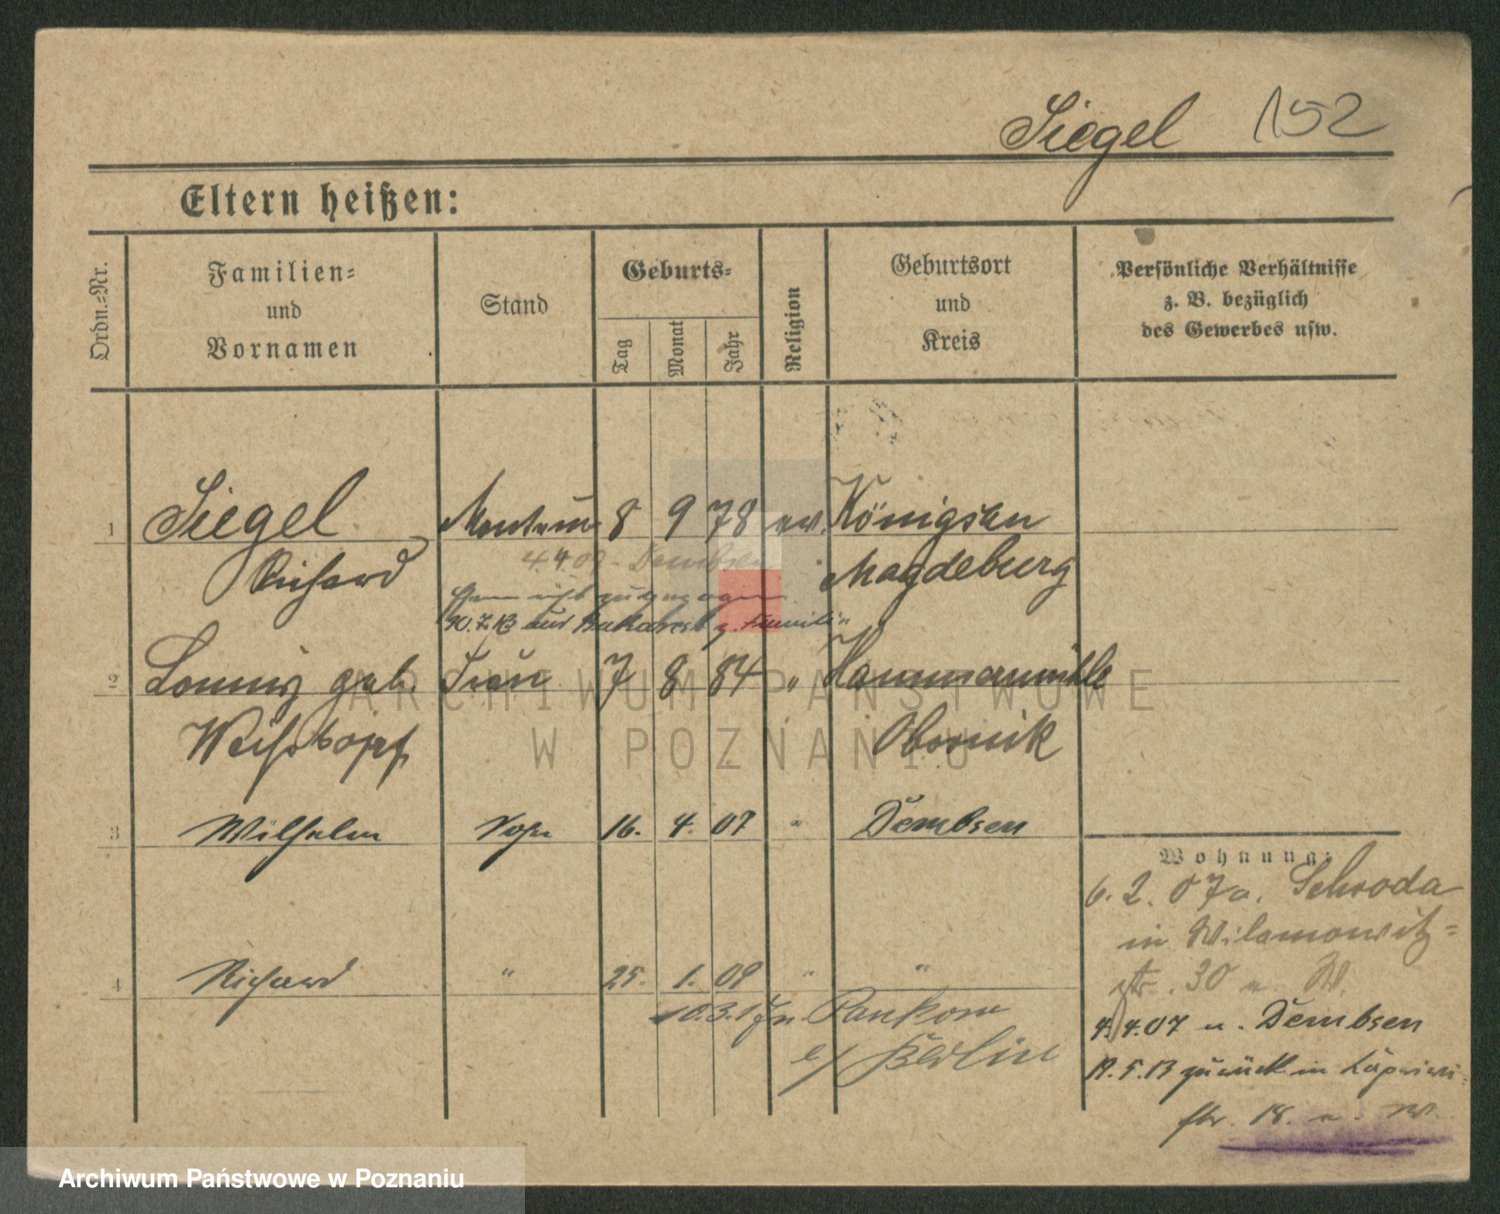 Siegel 152
Eltern heißen:
Ordn.-Nr.
Familien-
und
Vornamen
Stand
Geburts-
Tag
Monat
Jahr
Religion
Geburtsort
und
Kreis
Persönliche Verhältnisse
z. B. bezüglich
des Gewerbes usw.
1 Siegel 8 9 78 ev. Königsau
Richard Magdeburg
4.4.07 - Dembsen
30.7.13 aus Bukarest z. Familie
2 geb. Frau 7 8 84 " Hammermühle
Weihstopf Obornik
3 Wilhelm Sohn 16. 4. 07 " Dembsen
4 Richard " 25. 1. 09 " "
n. Pankow
b/ Berlin
Wohnung:
6. 2. 07 a. Schroda
in Wilamowitz=
str. 30 n. W.
4.4.07 n. Dembsen
19.5.13 zurück in
str. 18. n. W.
ARCHIWUM PAŃSTWOWE
W POZNANIU
Archiwum Państwowe w Poznaniu